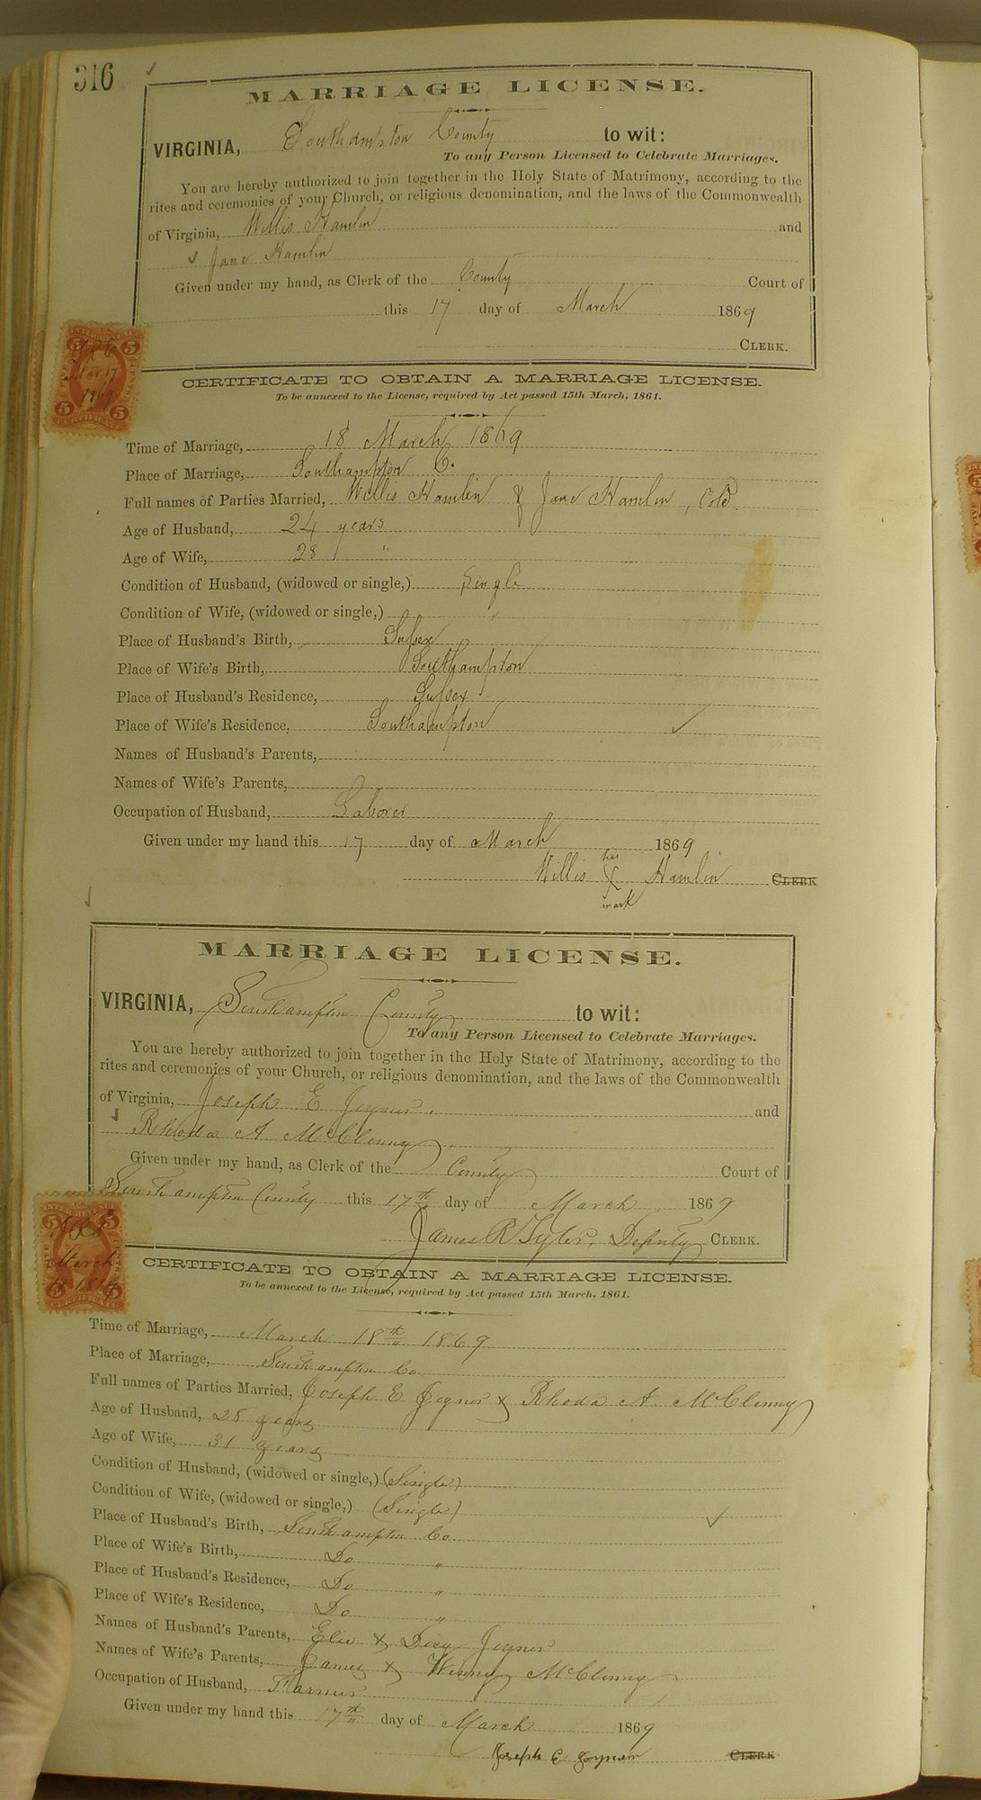 316
MARRIAGE LICENSE.
VIRGINIA, Southampton County to wit:
To any Person Licensed to Celebrate Marriages.
You are hereby authorized to join together in the Holy State of Matrimony, according to the
rites and ceremonies of your Church, or religious denomination, and the laws of the Commonwealth
of Virginia, Willis Hamlin and
Jane Hamlin
Given under my hand, as Clerk of the County Court of
this 17 day of March 1869
CLERK.
CERTIFICATE TO OBTAIN A MARRIAGE LICENSE.
To be annexed to the License, required by Act passed 15th March, 1861.
Time of Marriage, 18 March 1869
Place of Marriage, Southampton C.
Full names of Parties Married, Willis Hamlin & Jane Hamlin, Cold.
Age of Husband, 24 years
Age of Wife, 28 "
Condition of Husband, (widowed or single,) Single
Condition of Wife, (widowed or single,) "
Place of Husband's Birth, Sussex
Place of Wife's Birth, Southampton
Place of Husband's Residence, Sussex
Place of Wife's Residence, Southampton
Names of Husband's Parents,
Names of Wife's Parents,
Occupation of Husband, Laborer
Given under my hand this 17 day of March 1869
his
Willis X Hamlin CLERK
mark
MARRIAGE LICENSE.
VIRGINIA, Southampton County to wit:
To any Person Licensed to Celebrate Marriages.
You are hereby authorized to join together in the Holy State of Matrimony, according to the
rites and ceremonies of your Church, or religious denomination, and the laws of the Commonwealth
of Virginia, Joseph E Joyner and
Rhoda A McClenny
Given under my hand, as Clerk of the County Court of
Southampton County this 17th day of March 1869
James R Tyler, Deputy CLERK.
CERTIFICATE TO OBTAIN A MARRIAGE LICENSE.
To be annexed to the License, required by Act passed 15th March, 1861.
Time of Marriage, March 18th 1869
Place of Marriage, Southampton Co
Full names of Parties Married, Joseph E Joyner & Rhoda A McClenny
Age of Husband, 28 years
Age of Wife, 31 years
Condition of Husband, (widowed or single,) (Single)
Condition of Wife, (widowed or single,) (Single)
Place of Husband's Birth, Southampton Co.
Place of Wife's Birth, Do "
Place of Husband's Residence, Do "
Place of Wife's Residence, Do "
Names of Husband's Parents, & Joyner
Names of Wife's Parents, James & Winny McClenny
Occupation of Husband, Farmer
Given under my hand this 17th day of March 1869
Joseph E Joyner CLERK